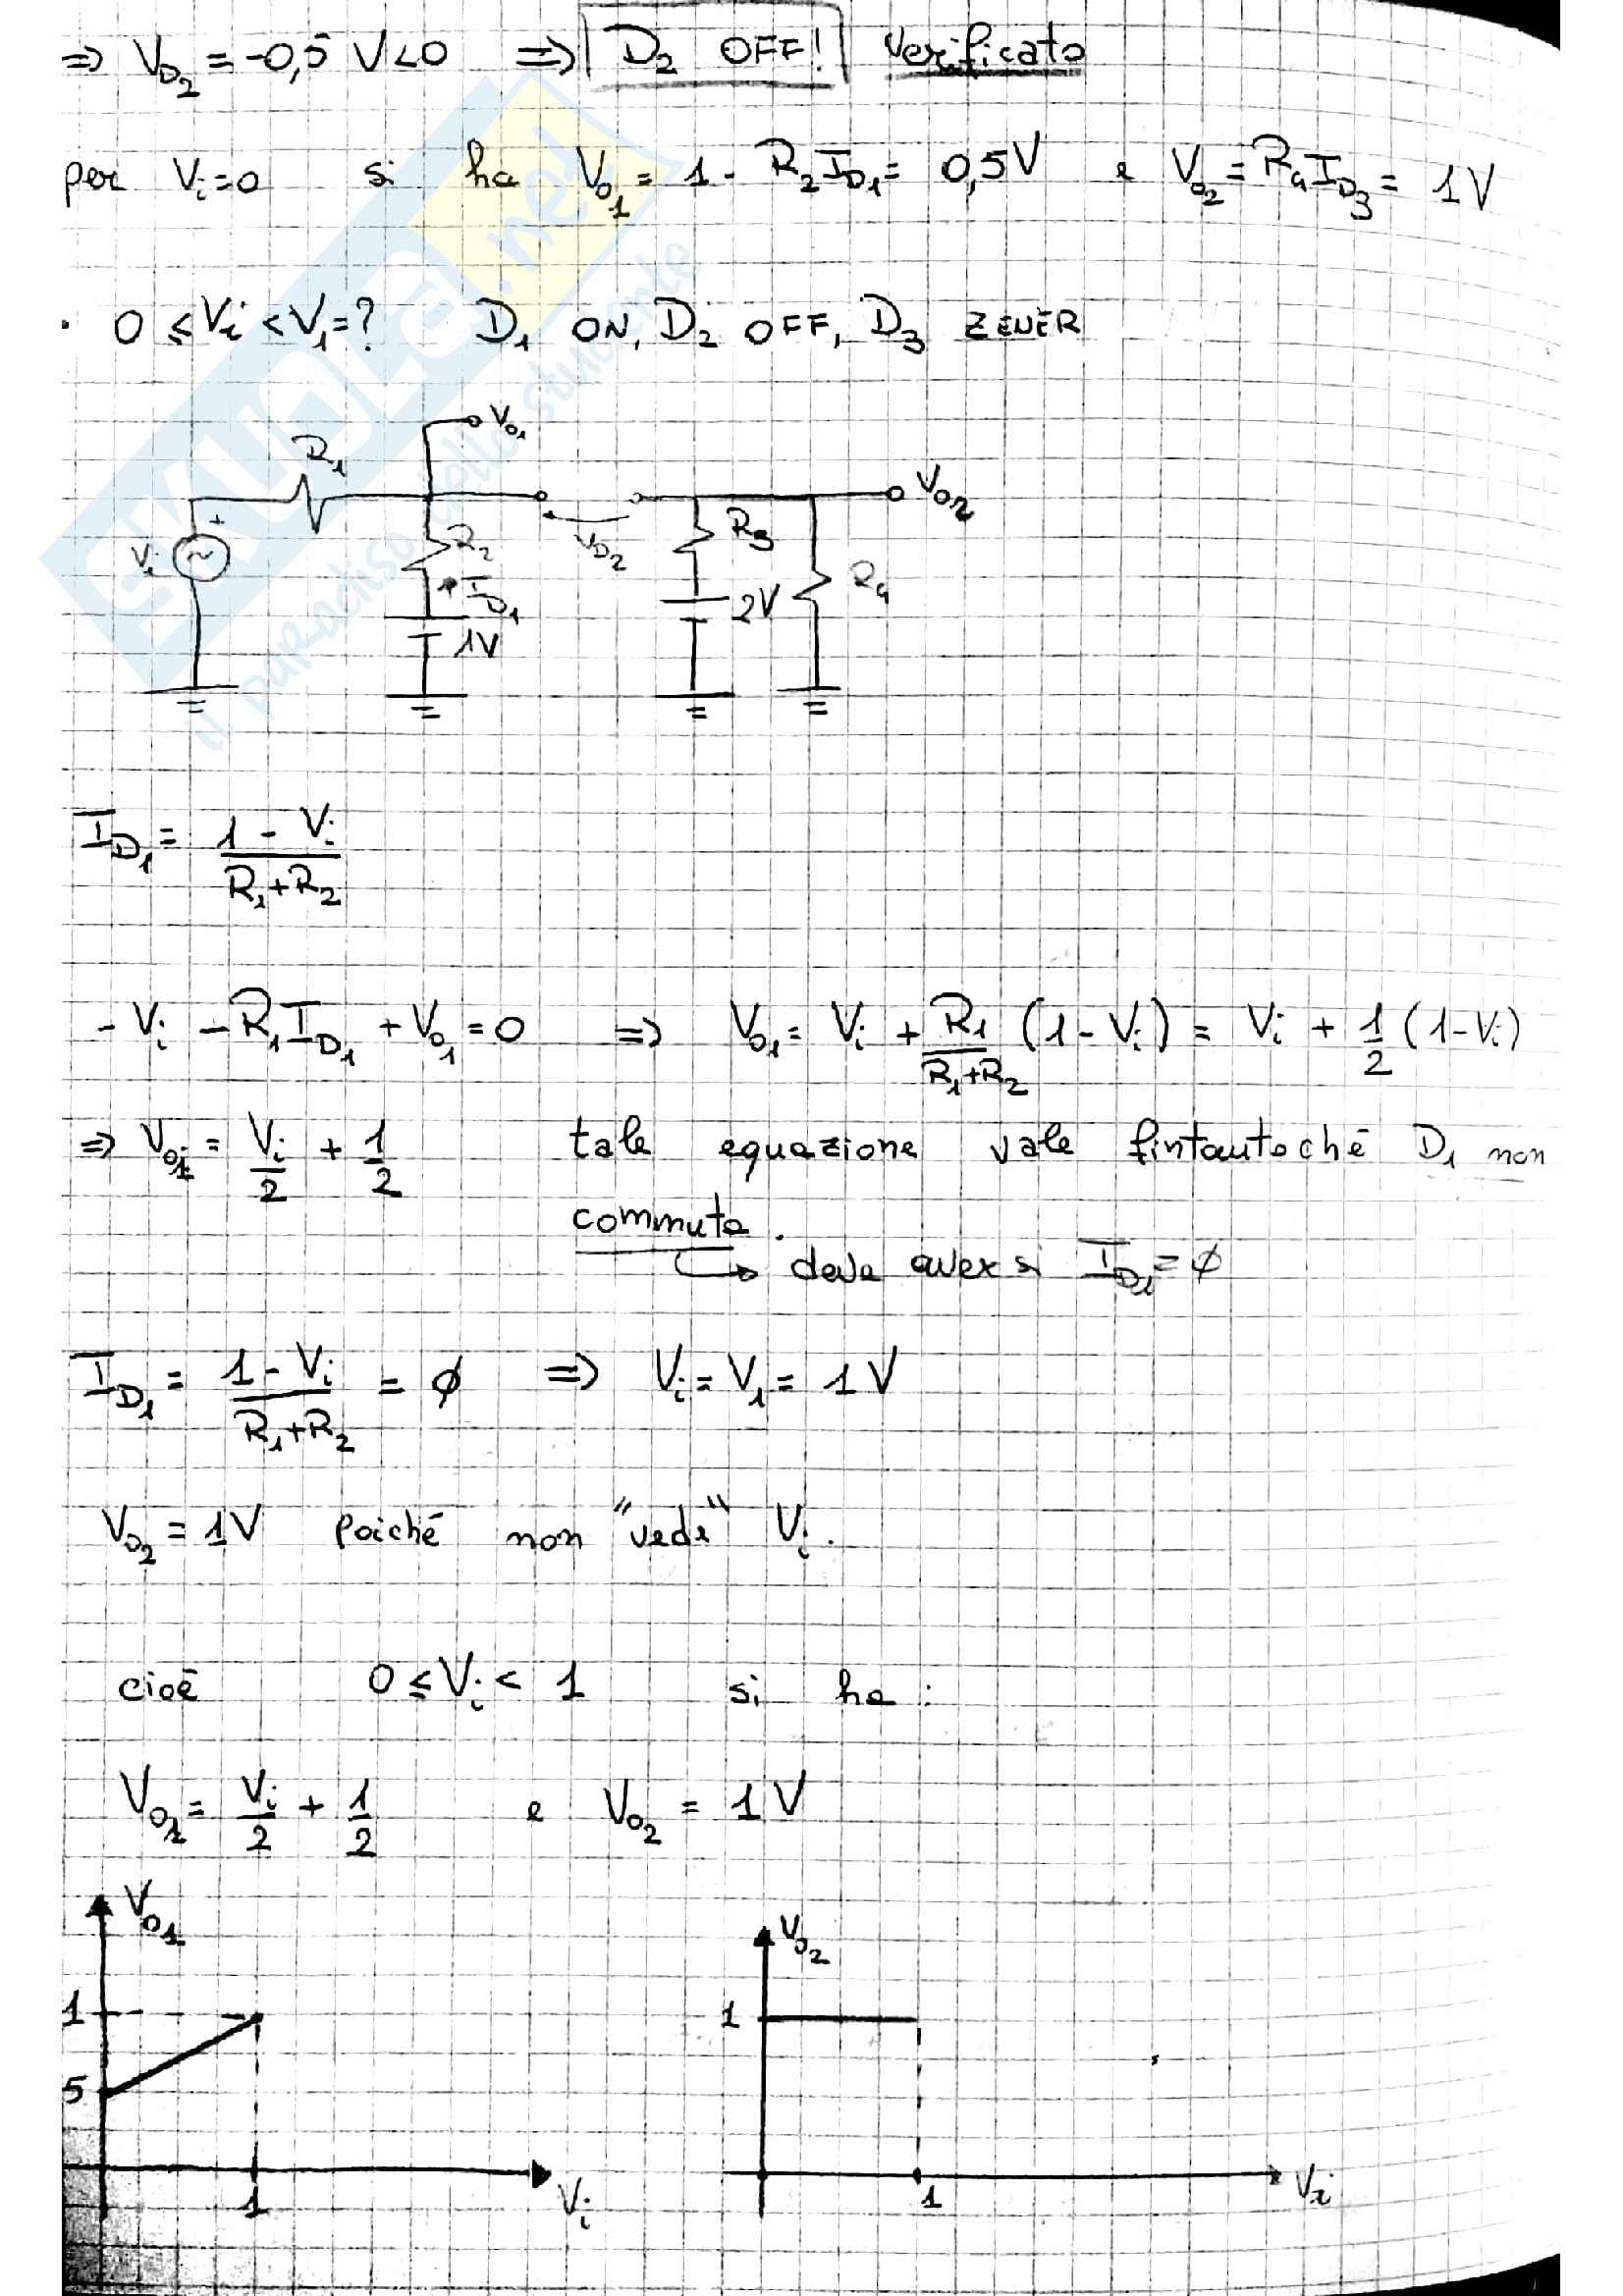 ⇒ V_D2 = -0,5 V<0 ⇒ D2 OFF! Verificato
per Vi=0 si ha Vo1 = 1 - R2 I_D1 = 0,5V e Vo2 = R4 I_D3 = 1V
· 0 ≤ Vi < V1=? D1 ON, D2 OFF, D3 ZENER
Vo1
R1
Vo2
+
Vi
~
R2
V_D2
R3
R4
I_D1
2V
1V
I_D1 = (1 - Vi)/(R1+R2)
- Vi - R1 I_D1 + Vo1 = 0 ⇒ Vo1 = Vi + R1/(R1+R2) (1 - Vi) = Vi + 1/2 (1-Vi)
⇒ Vo1 = Vi/2 + 1/2 tale equazione vale fintantoché D1 non
commuta.
↳ deve aversi I_D1 = ø
I_D1 = (1 - Vi)/(R1+R2) = ø ⇒ Vi = V1 = 1 V
Vo2 = 1V poiché non "vede" Vi.
cioè 0 ≤ Vi < 1 si ha :
Vo1 = Vi/2 + 1/2 e Vo2 = 1 V
Vo1
Vo2
1
1
5
1
Vi
1
Vi
SKUOLA.net
il paradiso dello studente